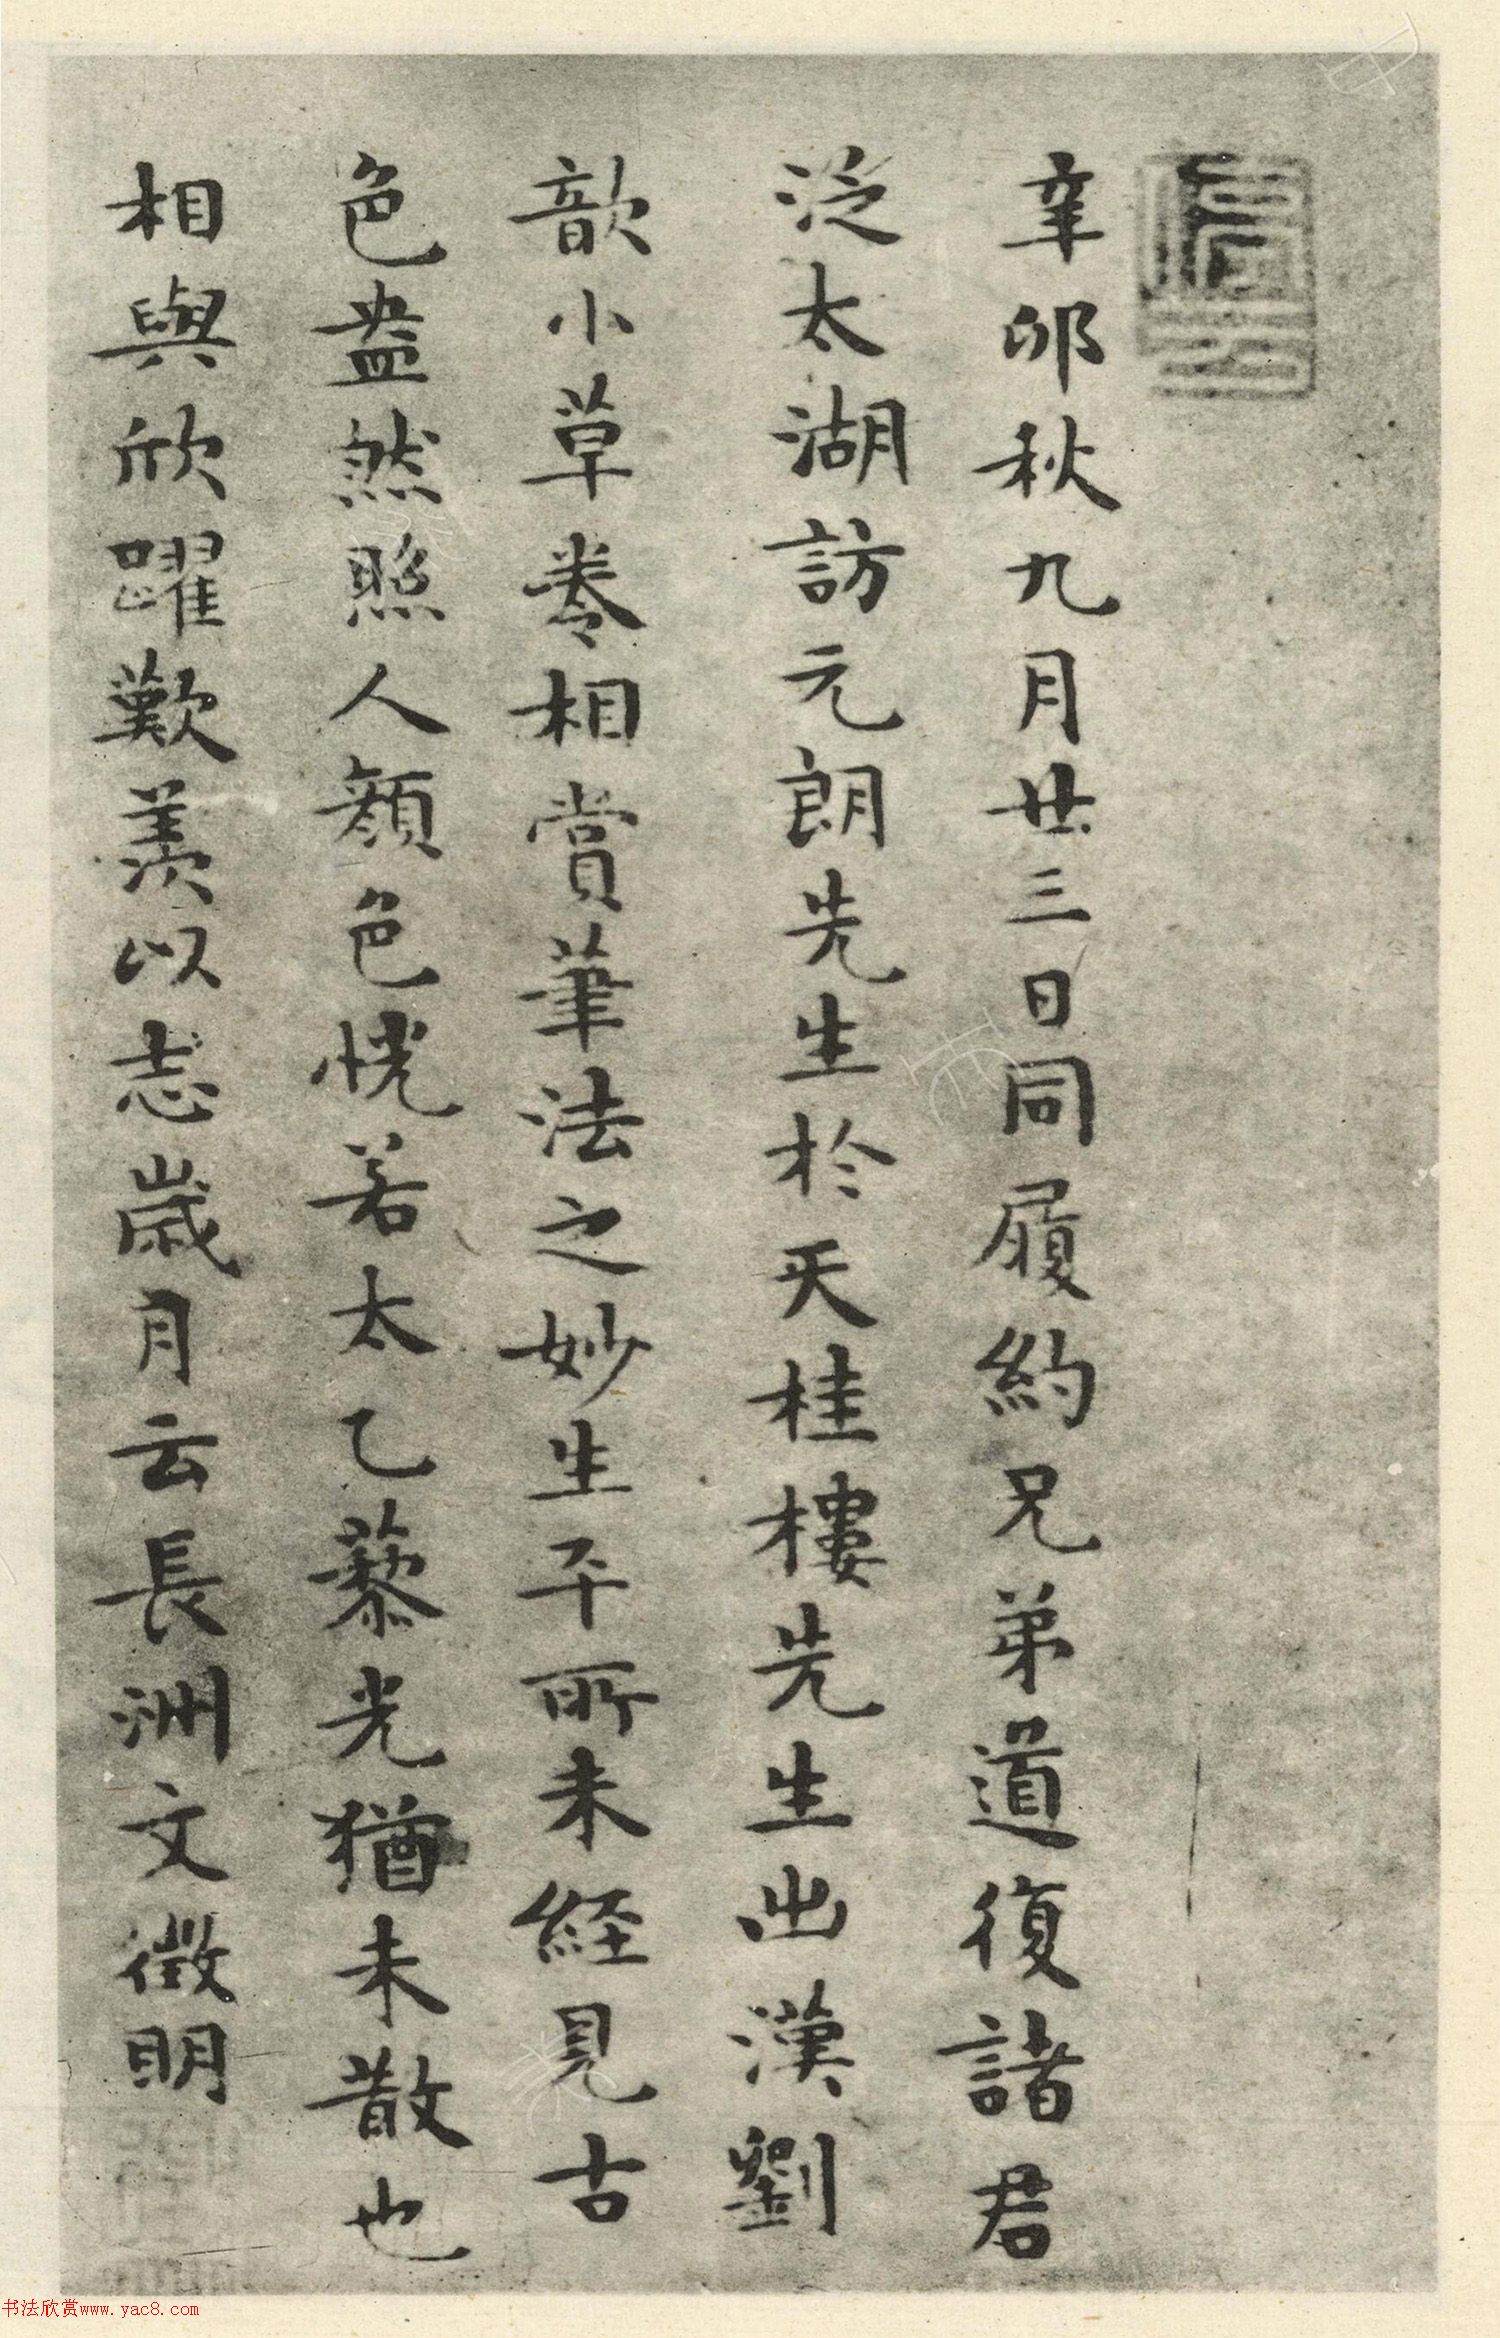 辛卯秋九月廿三日同履約兄弟道復諸君
泛太湖訪元朗先生於天桂樓先生出漢劉
歆小草卷相賞筆法之妙生平所未經見古
色盎然照人顏色恍若太乙藜光猶未散也
相與欣躍歎羨以志歲月云長洲文徵明
书法欣赏www.yac8.com